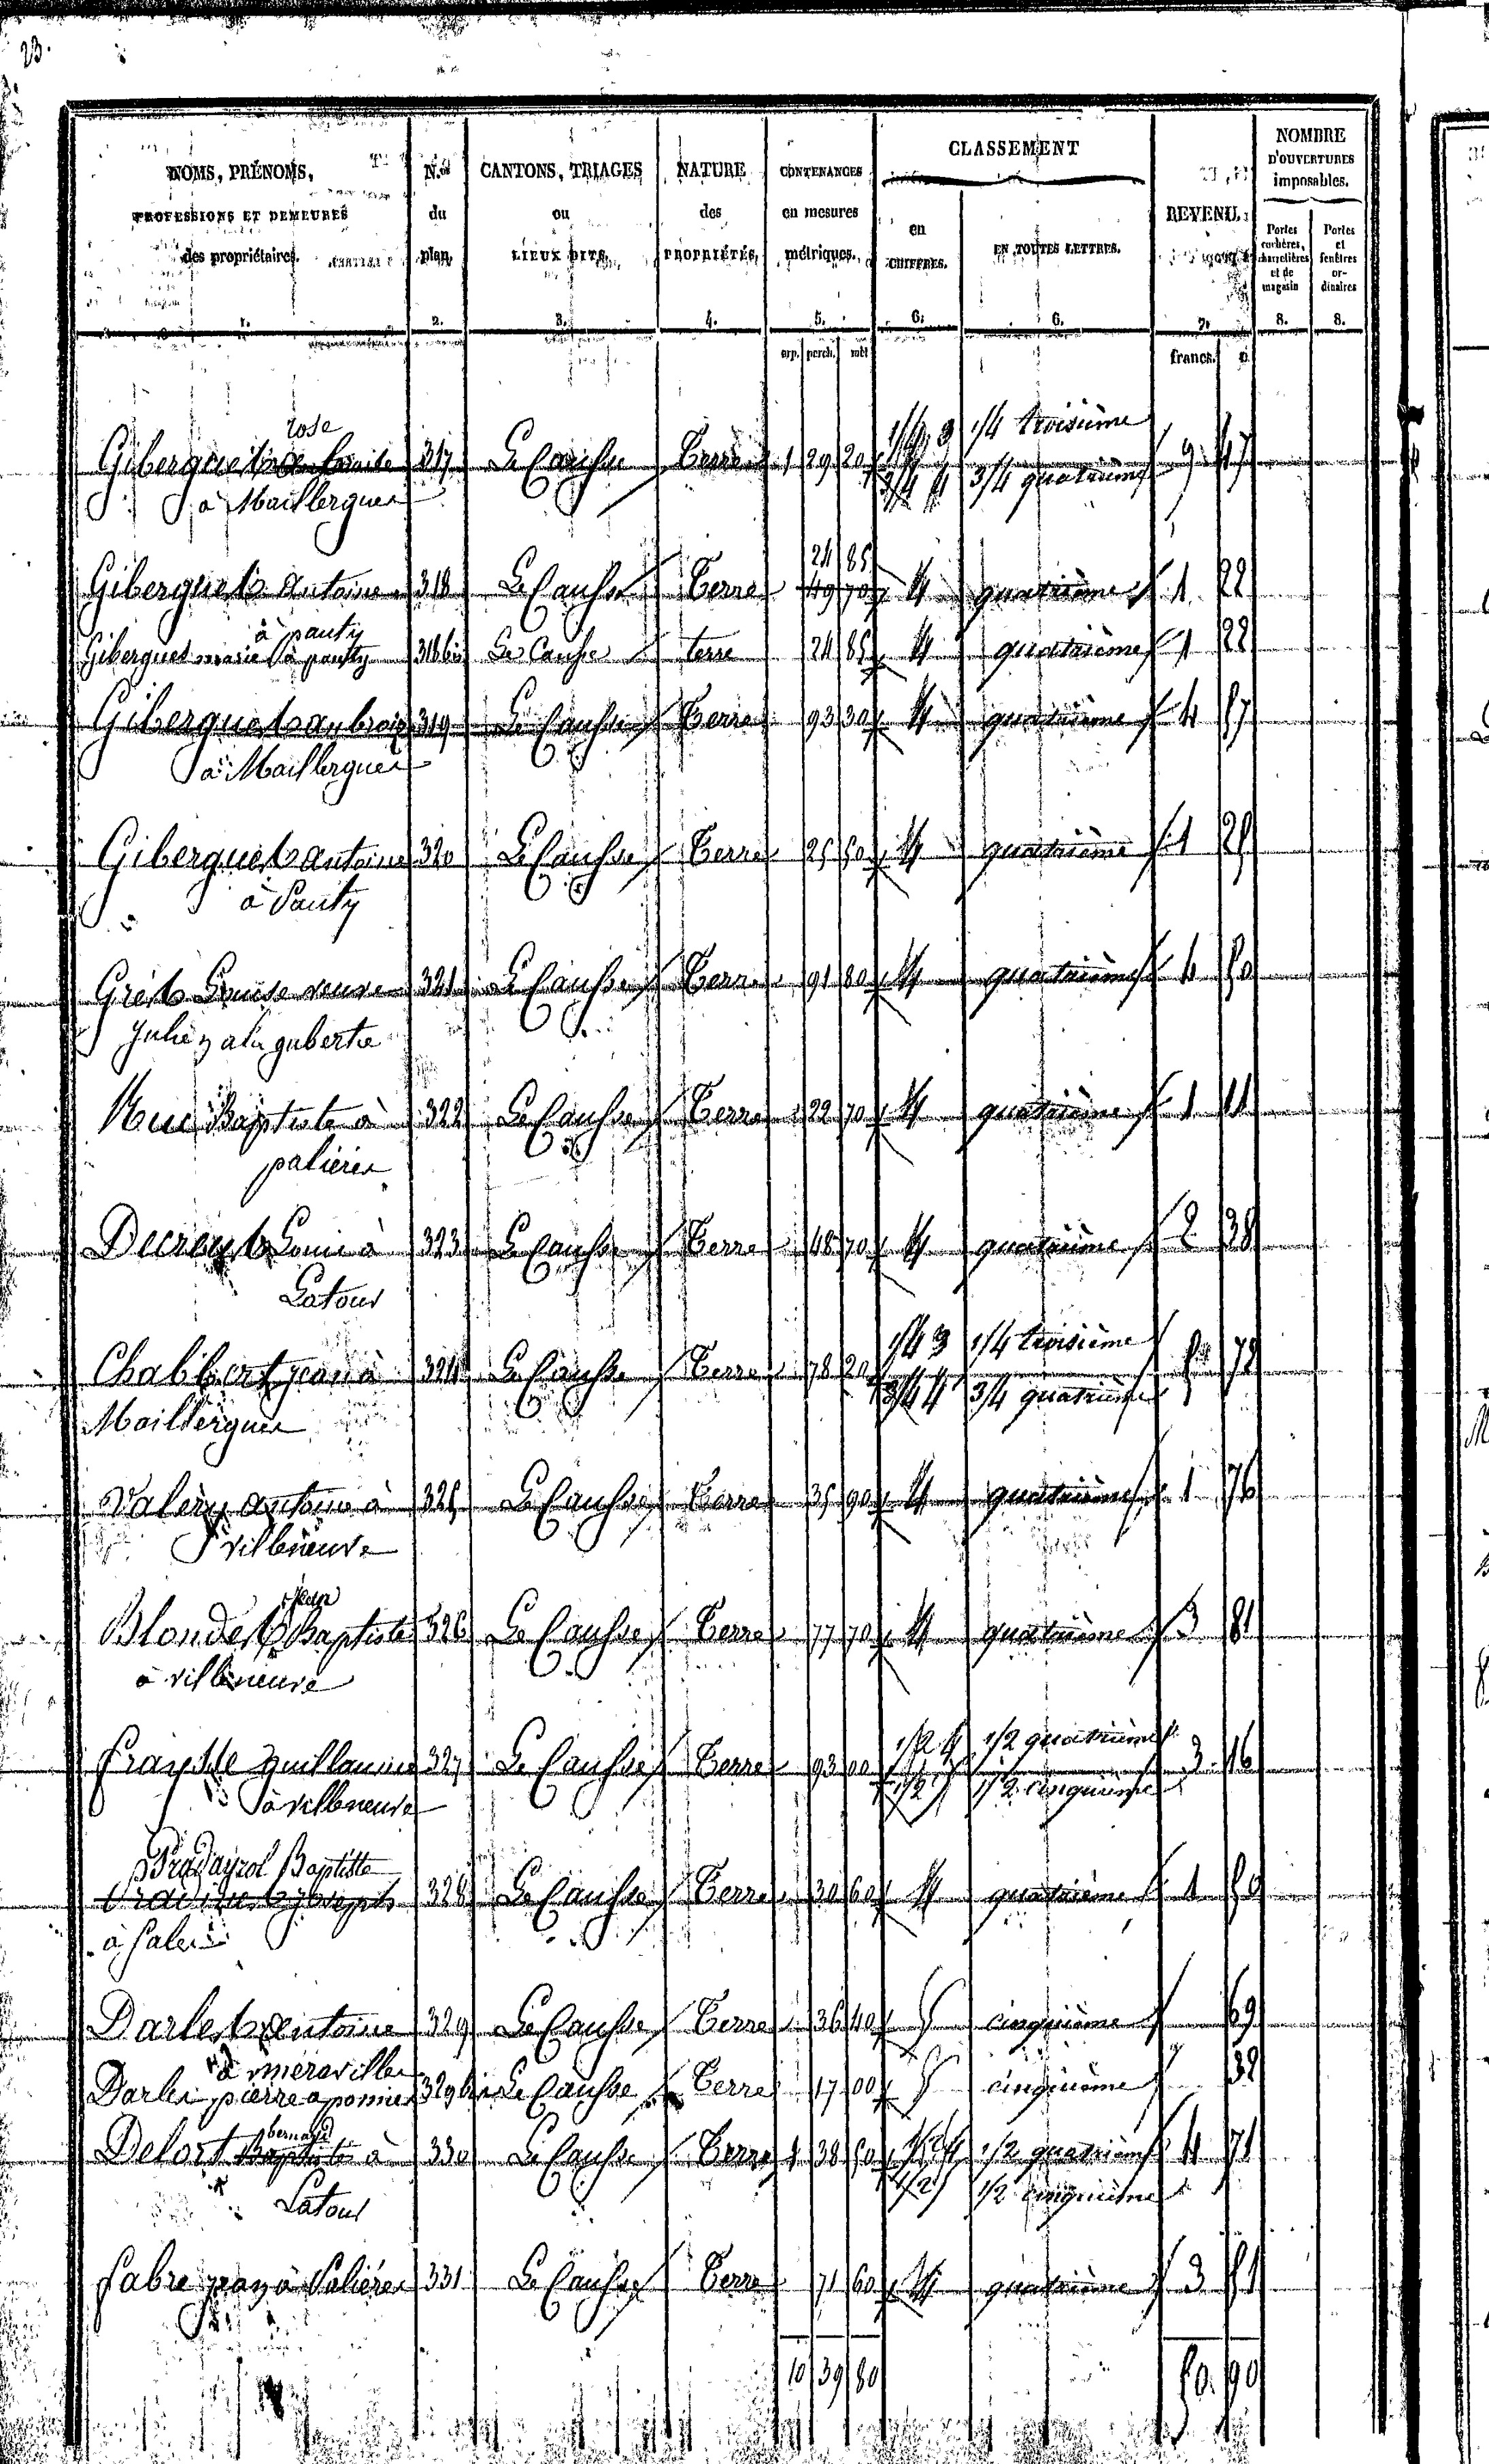 23.
NOMS, PRÉNOMS, PROFESSIONS ET DEMEURES des propriétaires. 1.
N.os du plan. 2.
CANTONS, TRIAGES ou LIEUX DITS. 3.
NATURE des PROPRIÉTÉS. 4.
CONTENANCES en mesures métriques. 5.
CLASSEMENT
en CHIFFRES. 6.
EN TOUTES LETTRES. 6.
REVENU. 7.
NOMBRE D'OUVERTURES imposables.
Portes cochères, charretières et de magasin 8.
Portes et fenêtres ordinaires 8.
arp. perch. mèt francs. c.
rose 1/4 3 1/4 troisième
Gibergues 317 Le Causse Terre 1 29 20 9 47
à Maillergues 3/4 4 3/4 quatrième
24 85
Gibergues Antoine 318 Le Causse Terre 49 70 4 quatrième 1 22
à pauty
Gibergues marie à pauty 318 bis Le Causse terre 24 85 4 quatrième 1 22
Gibergues ambroise 319 Le Causse Terre 93 30 4 quatrième 4 57
à Maillergues
Gibergues antoine 320 Le Causse Terre 25 50 4 quatrième 1 25
à Pauty
Grès Louise veuve 321 Le Causse Terre 91 80 4 quatrième 4 50
Julien a la gubertie
Baptiste à 322 Le Causse Terre 22 70 4 quatrième 1 11
palieres
Decreus Louis à 323 Le Causse Terre 48 70 4 quatrième 2 38
Latour
1/4 3 1/4 troisième
Chabbert jean à 324 Le Causse Terre 78 20 5 72
Maillergues 3/4 4 3/4 quatrième
Valery antoine à 325 Le Causse Terre 35 90 4 quatrième 1 76
villeneuve
Blondes Baptiste 326 Le Causse Terre 77 70 4 quatrième 3 81
à villeneuve
1/2 4 1/2 quatrième
fraysse guillaume 327 Le Causse Terre 93 00 3 16
à villeneuve 1/2 5 1/2 cinquième
Pradayrol Baptiste
joseph 328 Le Causse Terre 30 60 4 quatrième 1 50
à Sales
Darles antoine 329 Le Causse Terre 36 40 5 cinquième 69
à meraville
Darles pierre a pomies 329 bis Le Causse Terre 17 00 5 cinquième 32
bernard
Delort Baptiste à 330 Le Causse Terre 1 38 50 1/2 4 1/2 quatrième 4 71
Latour 1/2 5 1/2 cinquième
fabre jean à Palières 331 Le Causse Terre 71 60 4 quatrième 3 51
10 39 80 50. 90